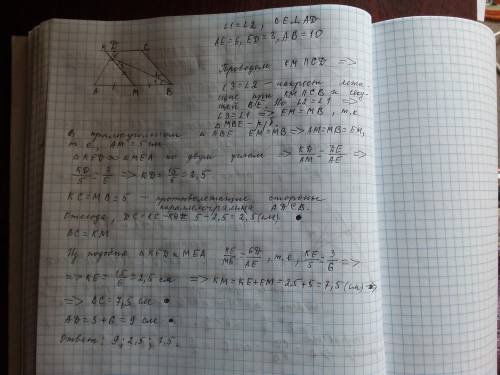 K D C
E
A M B
∠1=∠2, BE⊥AD
AE=6, ED=3, AB=10
Проводим KM∥CD =>
∠3=∠2 — накрест лежа-
щие при KM∥CD и секу-
щей BE. Но ∠2=∠1 =>
∠3=∠1 => EM=MB, т.к.
△MBE - р/б.
В прямоугольном △ABE EM=MB => AM=MB=EM,
т.е. AM=5 см
△KED∾△MEA по двум углам => KD/AM = DE/AE =>
KD/5 = 3/6 => KD = 15/6 = 2,5
KC=MB=5 - противолежащие стороны
параллелограмма
Отсюда, DC=KC-KD= 5-2,5=2,5(см).
BC=KM
Из подобия △KED и △MEA KE/ME = ED/AE, т.е. KE/5 = 3/6 =>
=> KE = 15/6 = 2,5 см => KM=KE+EM=2,5+5=7,5(см) =>
=> BC=7,5 см
AD=3+6=9 см
Ответ: 9; 2,5; 7,5.